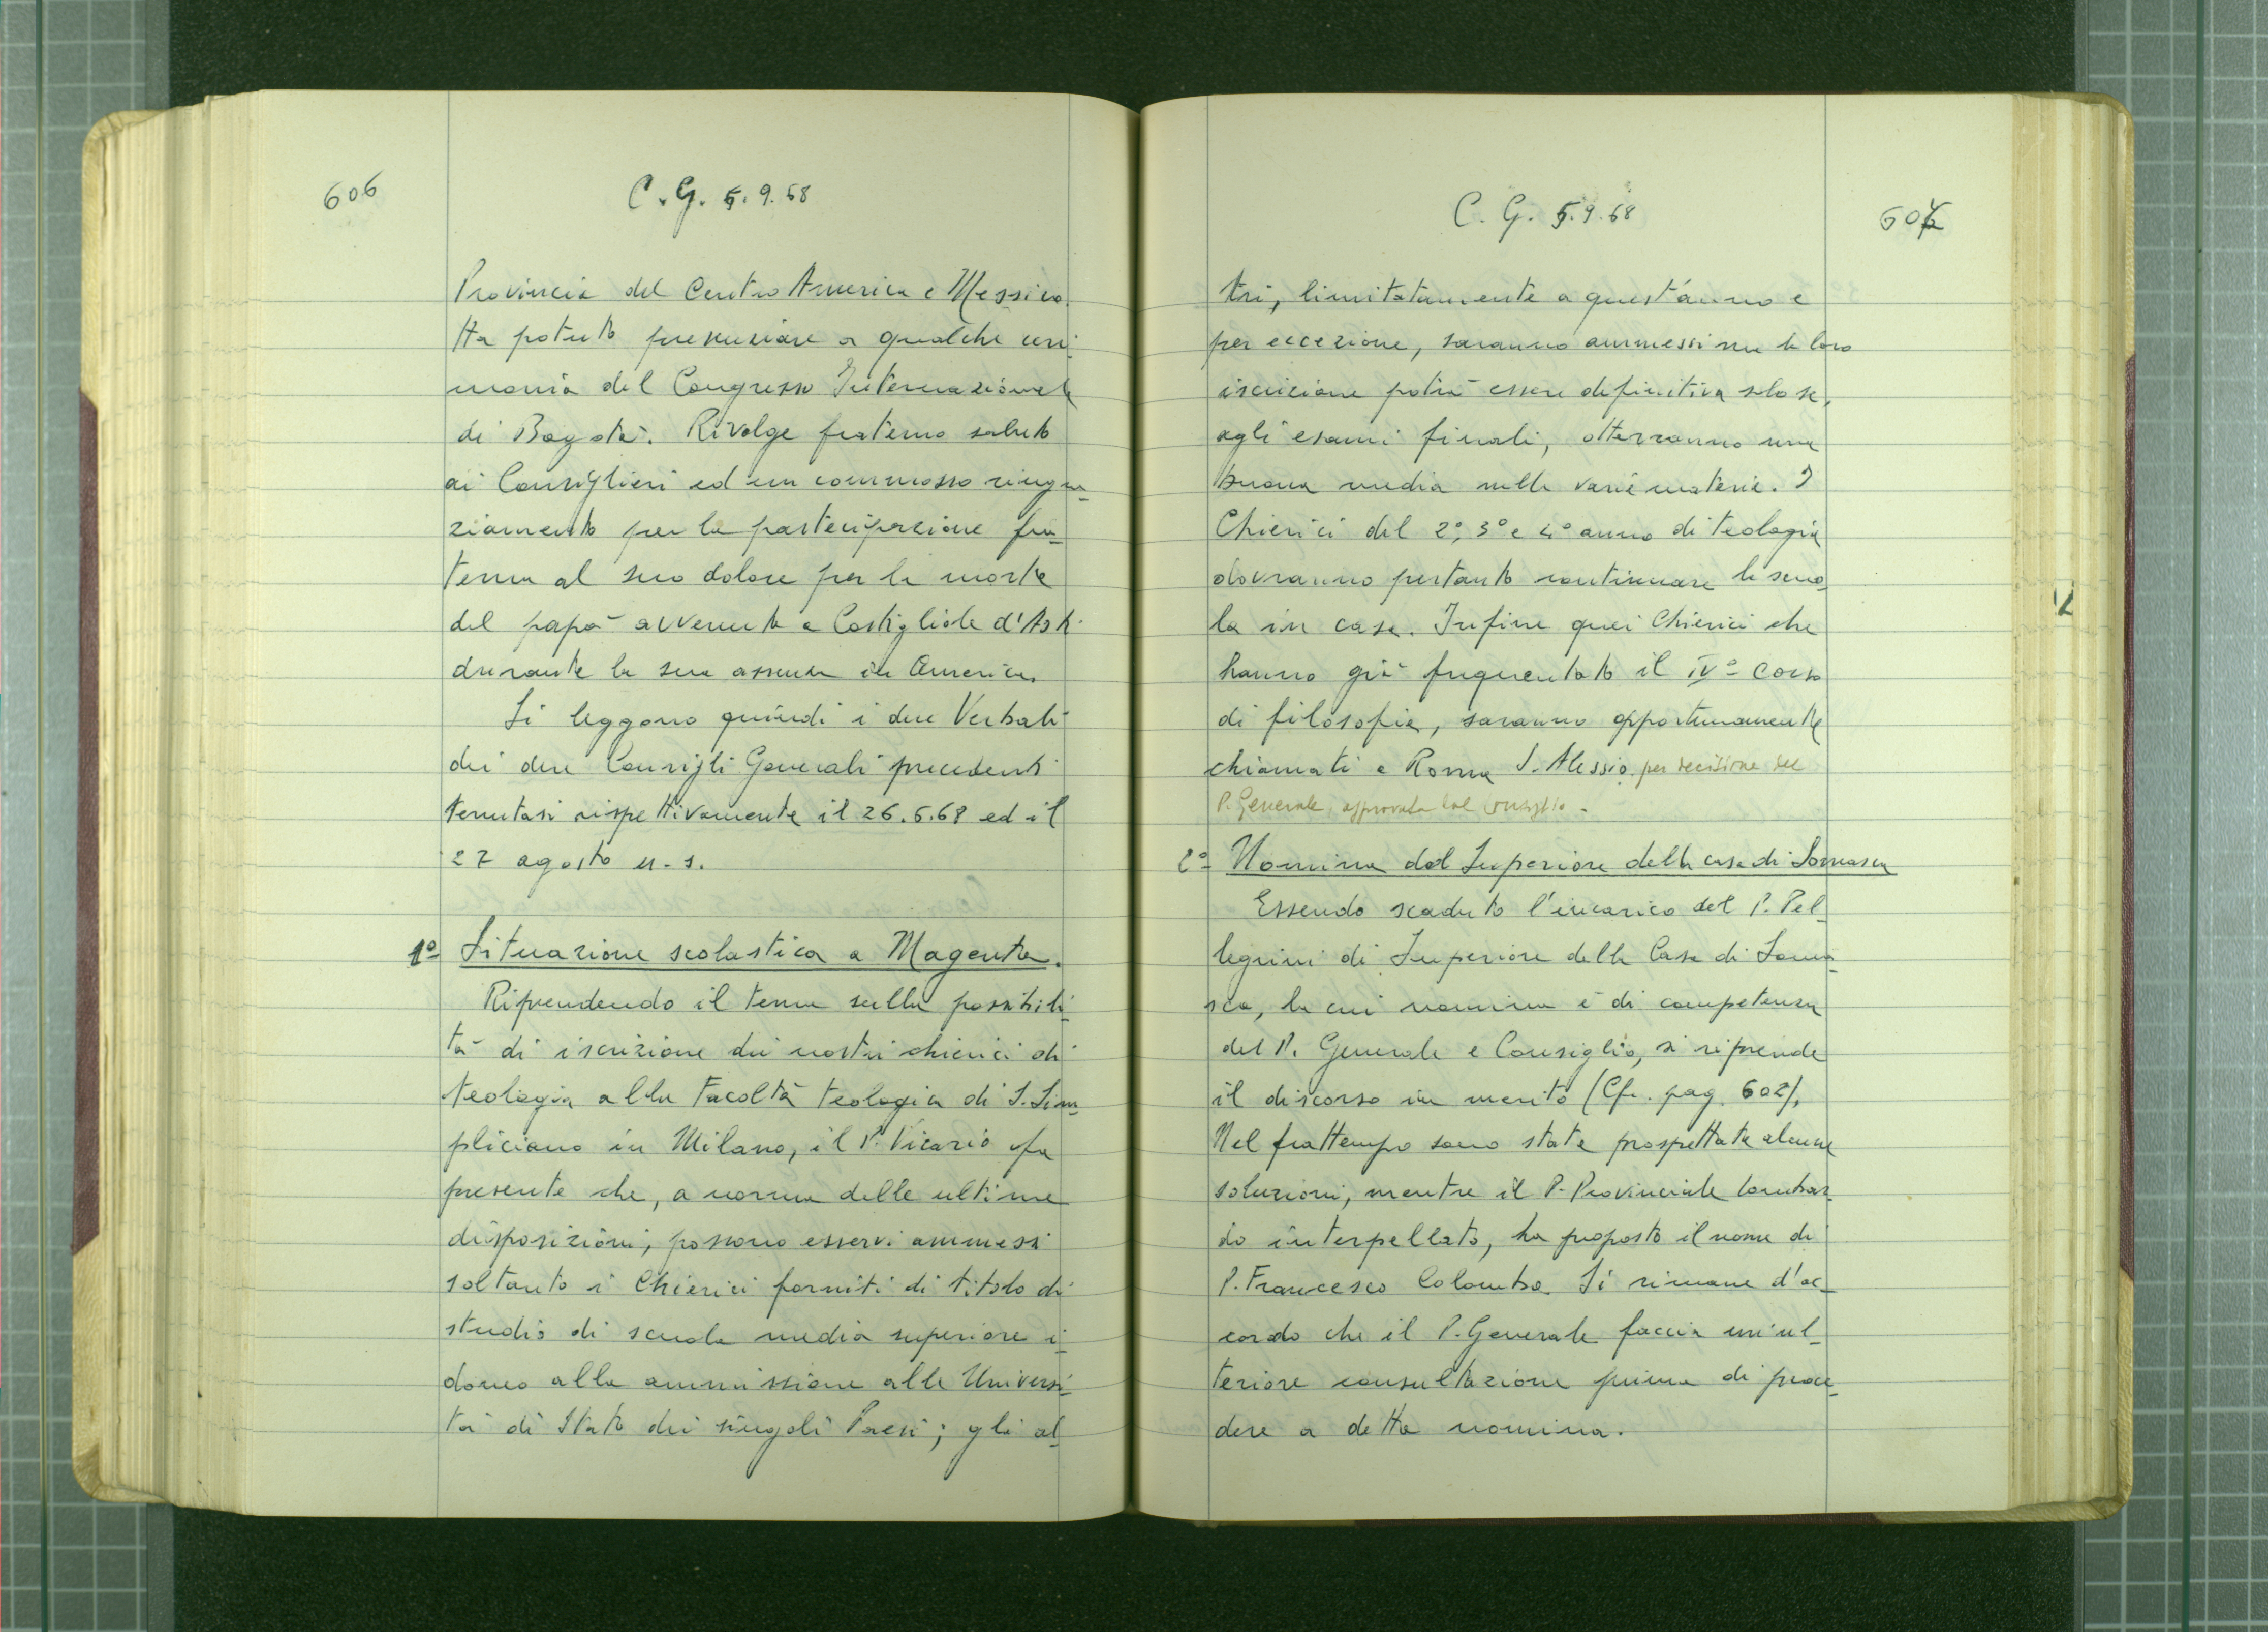 606
C.G. 5.9.68
Provincia del Centro America e Messico.
Ha potuto presenziare a qualche ceri-
monia del Congresso Internazionale
di Bogotà. Rivolge fraterno saluto
ai Consiglieri ed un commosso ringra-
ziamento per la partecipazione fra-
terna al suo dolore per la morte
del papà avvenuta a Costigliole d'Asti
durante la sua assenza in America.
Si leggono quindi i due Verbali
dei due Consigli Generali precedenti
tenutasi rispettivamente il 26.6.68 ed il
27 agosto u.s.
1º Situazione scolastica a Magenta.
Riprendendo il tema sulla possibili-
tà di iscrizione dei nostri chierici di
teologia alla Facoltà teologica di S. Sim-
pliciano in Milano, il P. Vicario fa
presente che, a norma delle ultime
disposizioni, possono esservi ammessi
soltanto i Chierici forniti di titolo di
studio di scuola media superiore i-
doneo alla ammissione alle Universi-
tà di Stato dei singoli Paesi; gli al-
C.G. 5.9.68
607
tri, limitatamente a quest'anno e
per eccezione, saranno ammessi ma la loro
iscrizione potrà essere definitiva solo se,
agli esami finali, otterranno una
buona media nelle varie materie. I
Chierici del 2º, 3º e 4º anno di teologia
dovranno pertanto continuare la scuo-
la in casa. Infine quei Chierici che
hanno già frequentato il IVº corso
di filosofia, saranno opportunamente
chiamati a Roma S. Alessio per decisione del
P. Generale, approvata dal Consiglio.
2º Nomina del Superiore della casa di Somasca
Essendo scaduto l'incarico del P. Pel-
legrini di Superiore della Casa di Soma-
sca, la cui nomina è di competenza
del P. Generale e Consiglio, si riprende
il discorso in merito (Cfr. pag. 602).
Nel frattempo sono state prospettate alcune
soluzioni, mentre il P. Provinciale lombar-
do interpellato, ha proposto il nome di
P. Francesco Colombo. Si rimane d'ac-
cordo che il P. Generale faccia un'ul-
teriore consultazione prima di proce-
dere a detta nomina.